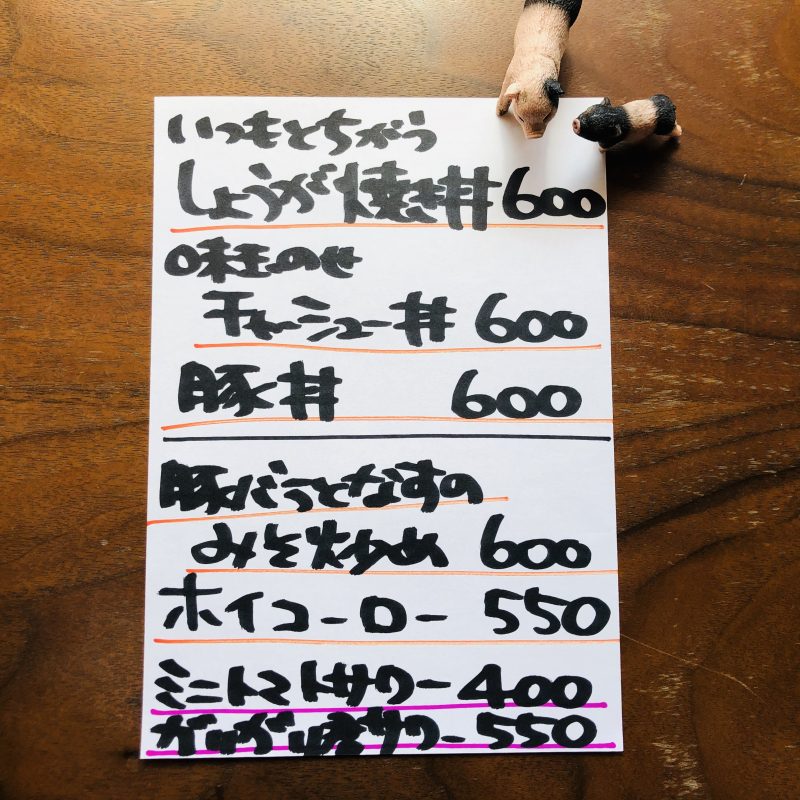 いつもとちがう
しょうが焼き丼 600
味玉のせ
チャーシュー丼 600
豚丼 600
豚バラとなすの
みそ炒め 600
ホイコーロー 550
ミニトマトサワー 400
ガリガリ君サワー 550